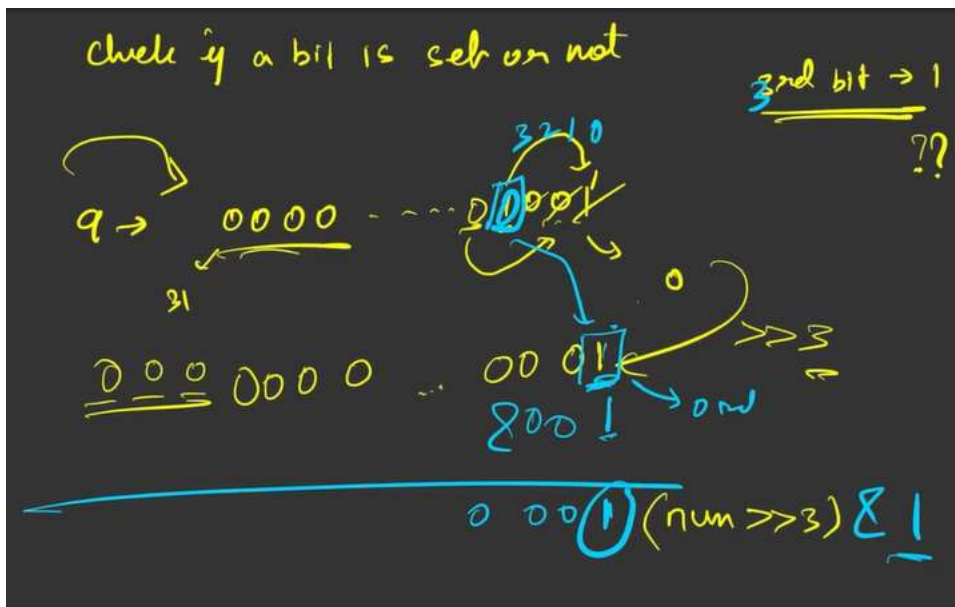 Check if a bit is set or not
3rd bit → 1
??
3 2 1 0
9 → 0000 ..... 01001
31
0
000 0000 ... 0001 >>3
& 001 → 0 nd
0 001 (num >>3) & 1